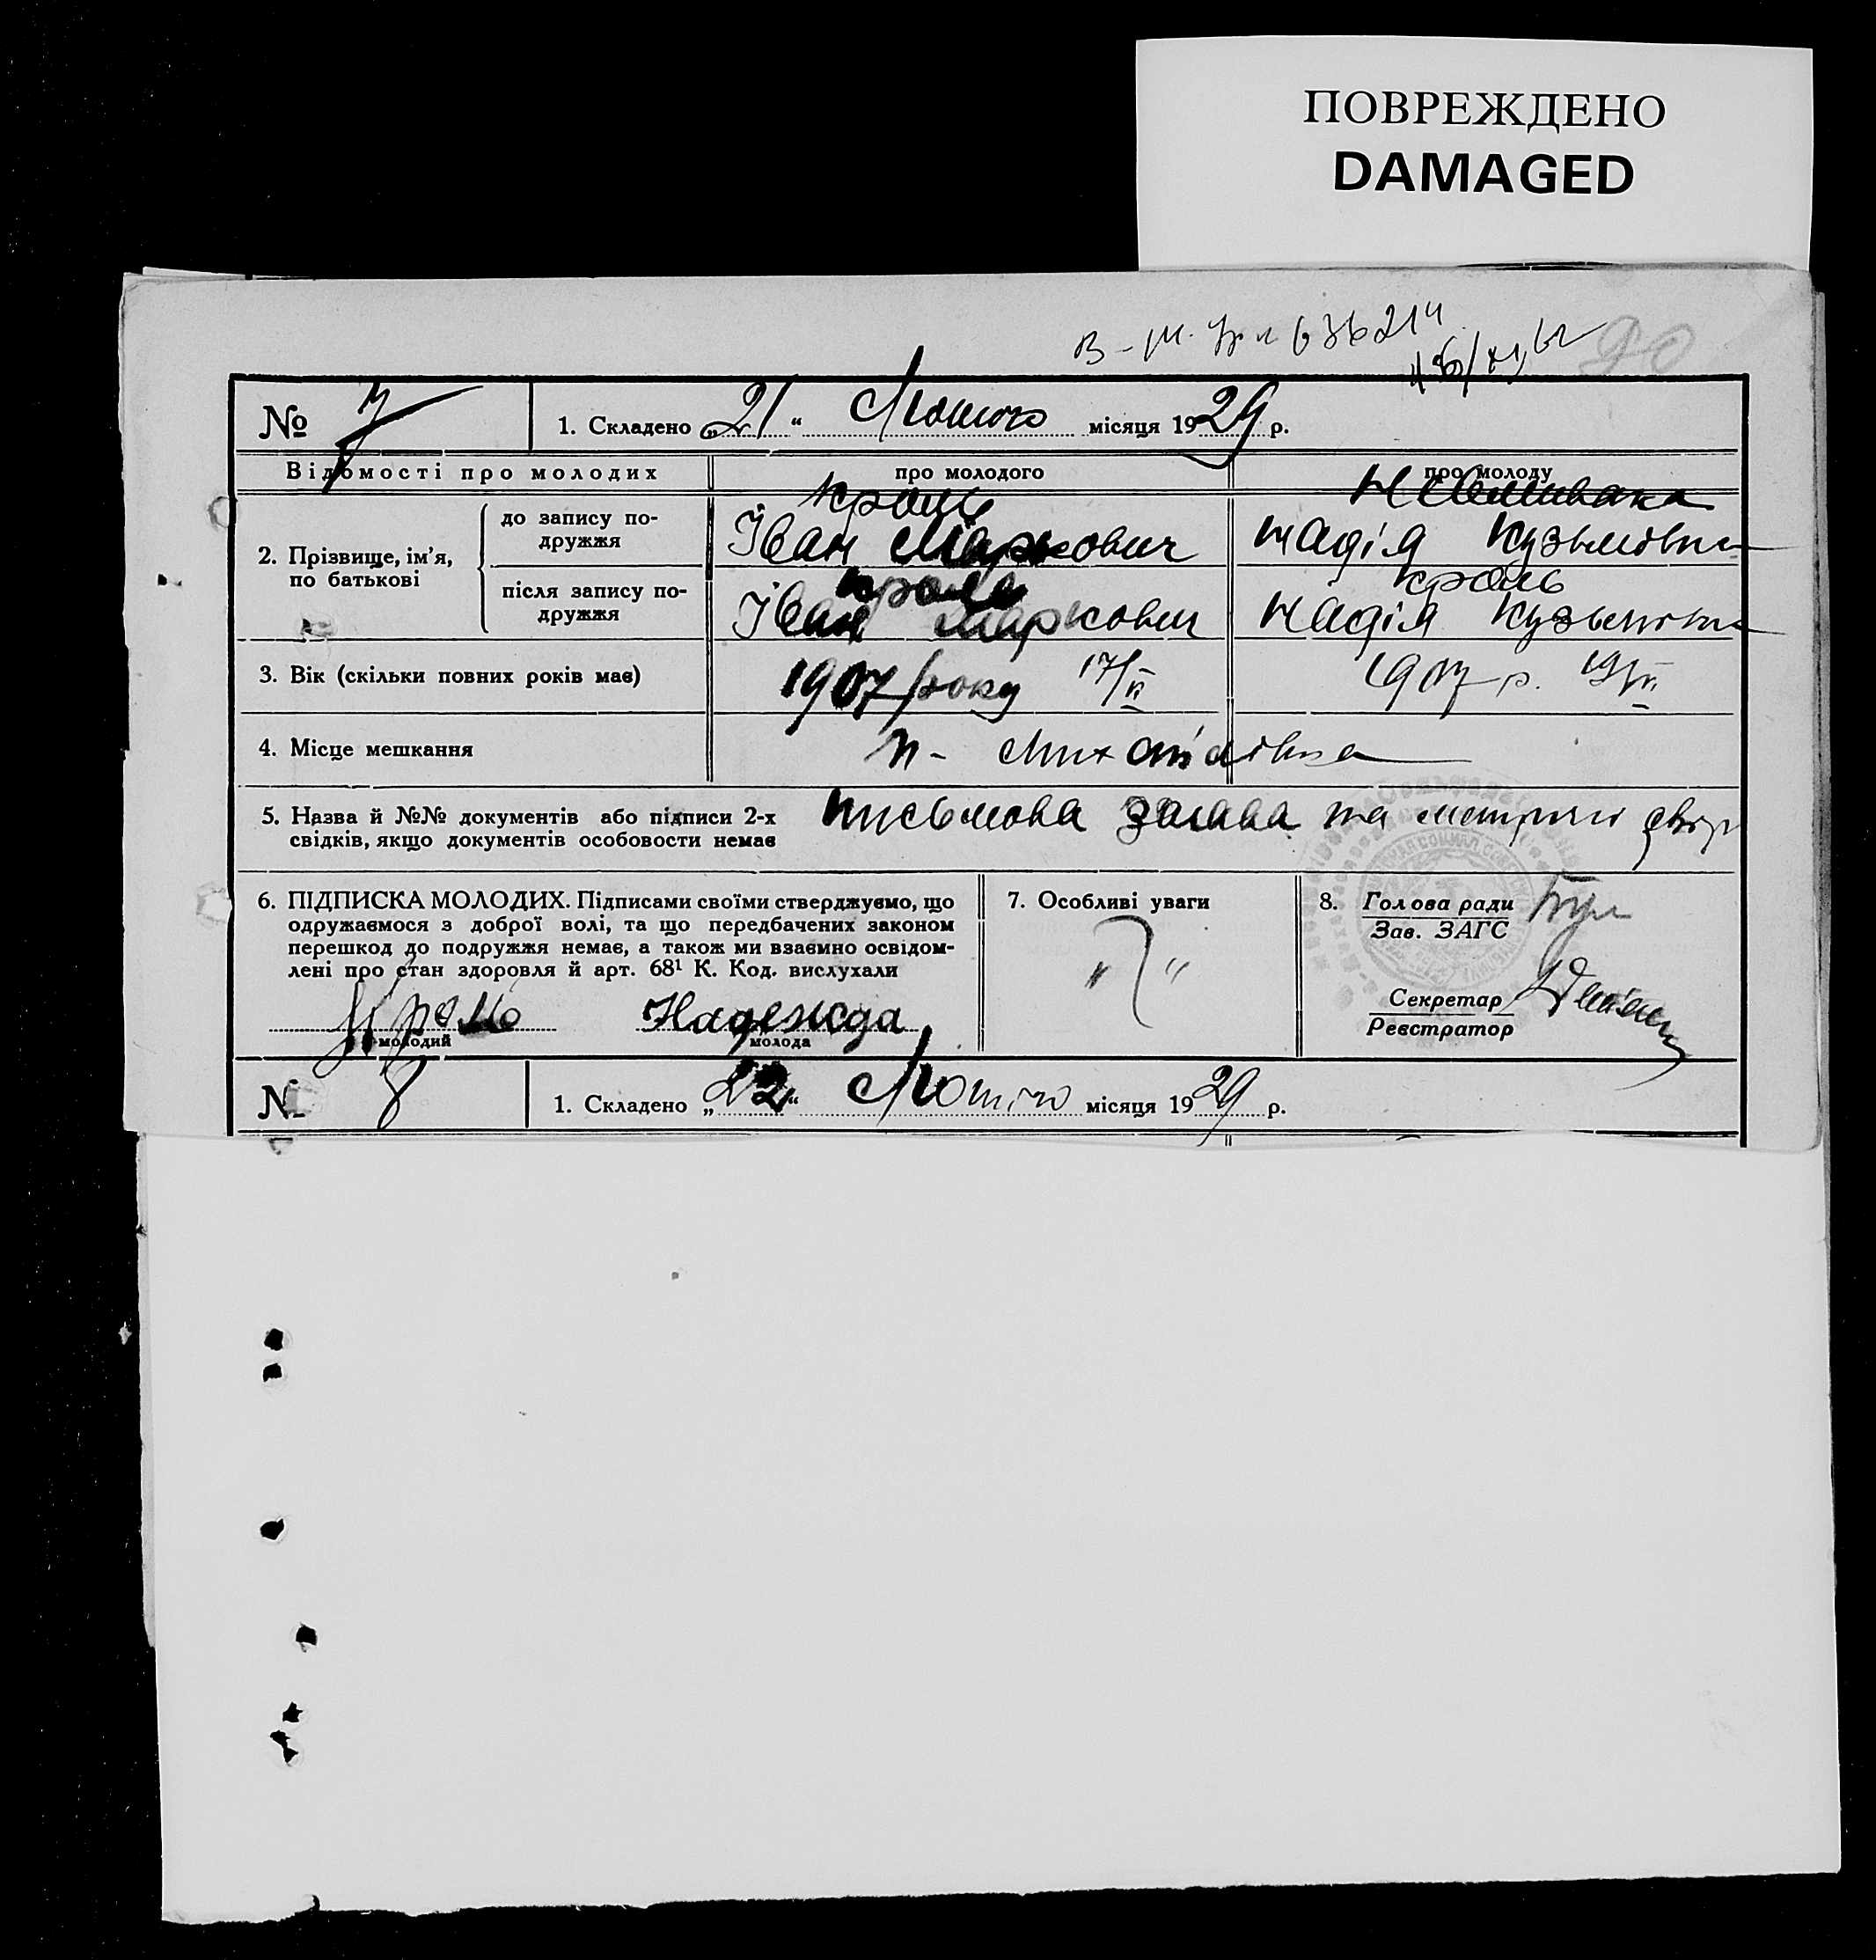 ПОВРЕЖДЕНО
DAMAGED
636214
90
№ 7
1. Складено „21“ Лютого місяця 1929 р.
Відомості про молодих
про молодого
про молоду
2. Прізвище, ім’я, по батькові
до запису по-
дружжя
Кроль
Іван Маркович
Надія Кузьмівна
після запису по-
дружжя
Кроль
Іван Маркович
Кроль
Надія Кузьмівна
3. Вік (скільки повних років має)
1907 року 17/II
1907 р.
4. Місце мешкання
Михайлівка
5. Назва й №№ документів або підписи 2-х
свідків, якщо документів особовости немає
письмова заява та метричні
6. ПІДПИСКА МОЛОДИХ. Підписами своїми стверджуємо, що
одружаємося з доброї волі, та що передбачених законом
перешкод до подружжя немає, а також ми взаємно освідом-
лені про стан здоров'я й арт. 68¹ К. Код. вислухали
Кроль
молодий
Надежда
молода
7. Особливі уваги
8. Голова ради
Зав. ЗАГС
Секретар
Реєстратор
№ 8
1. Складено „22“ Лютого місяця 1929 р.